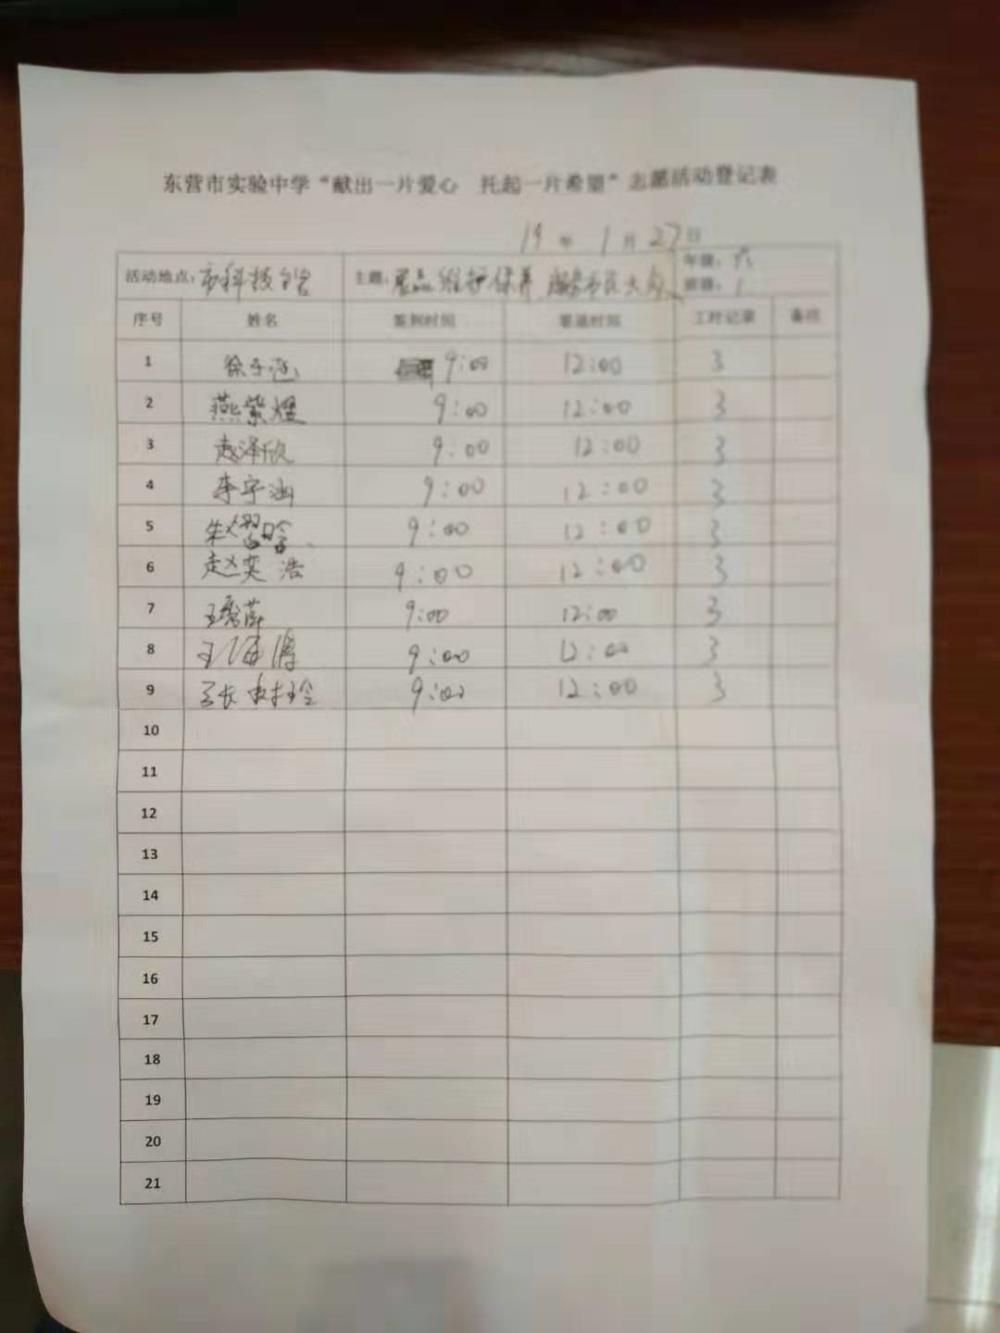 东营市实验中学“献出一片爱心 托起一片希望”志愿活动登记表
19年1月27日
活动地点：市科技馆 主题：展品维护保养 服务市民大众 年级：六
班级：1
序号 姓名 签到时间 签退时间 工时记录 备注
1 徐子涵 9:00 12:00 3
2 燕紫煜 9:00 12:00 3
3 赵泽欣 9:00 12:00 3
4 李宇涵 9:00 12:00 3
5 9:00 12:00 3
6 赵奕浩 9:00 12:00 3
7 9:00 12:00 3
8 9:00 12:00 3
9 9:00 12:00 3
10
11
12
13
14
15
16
17
18
19
20
21